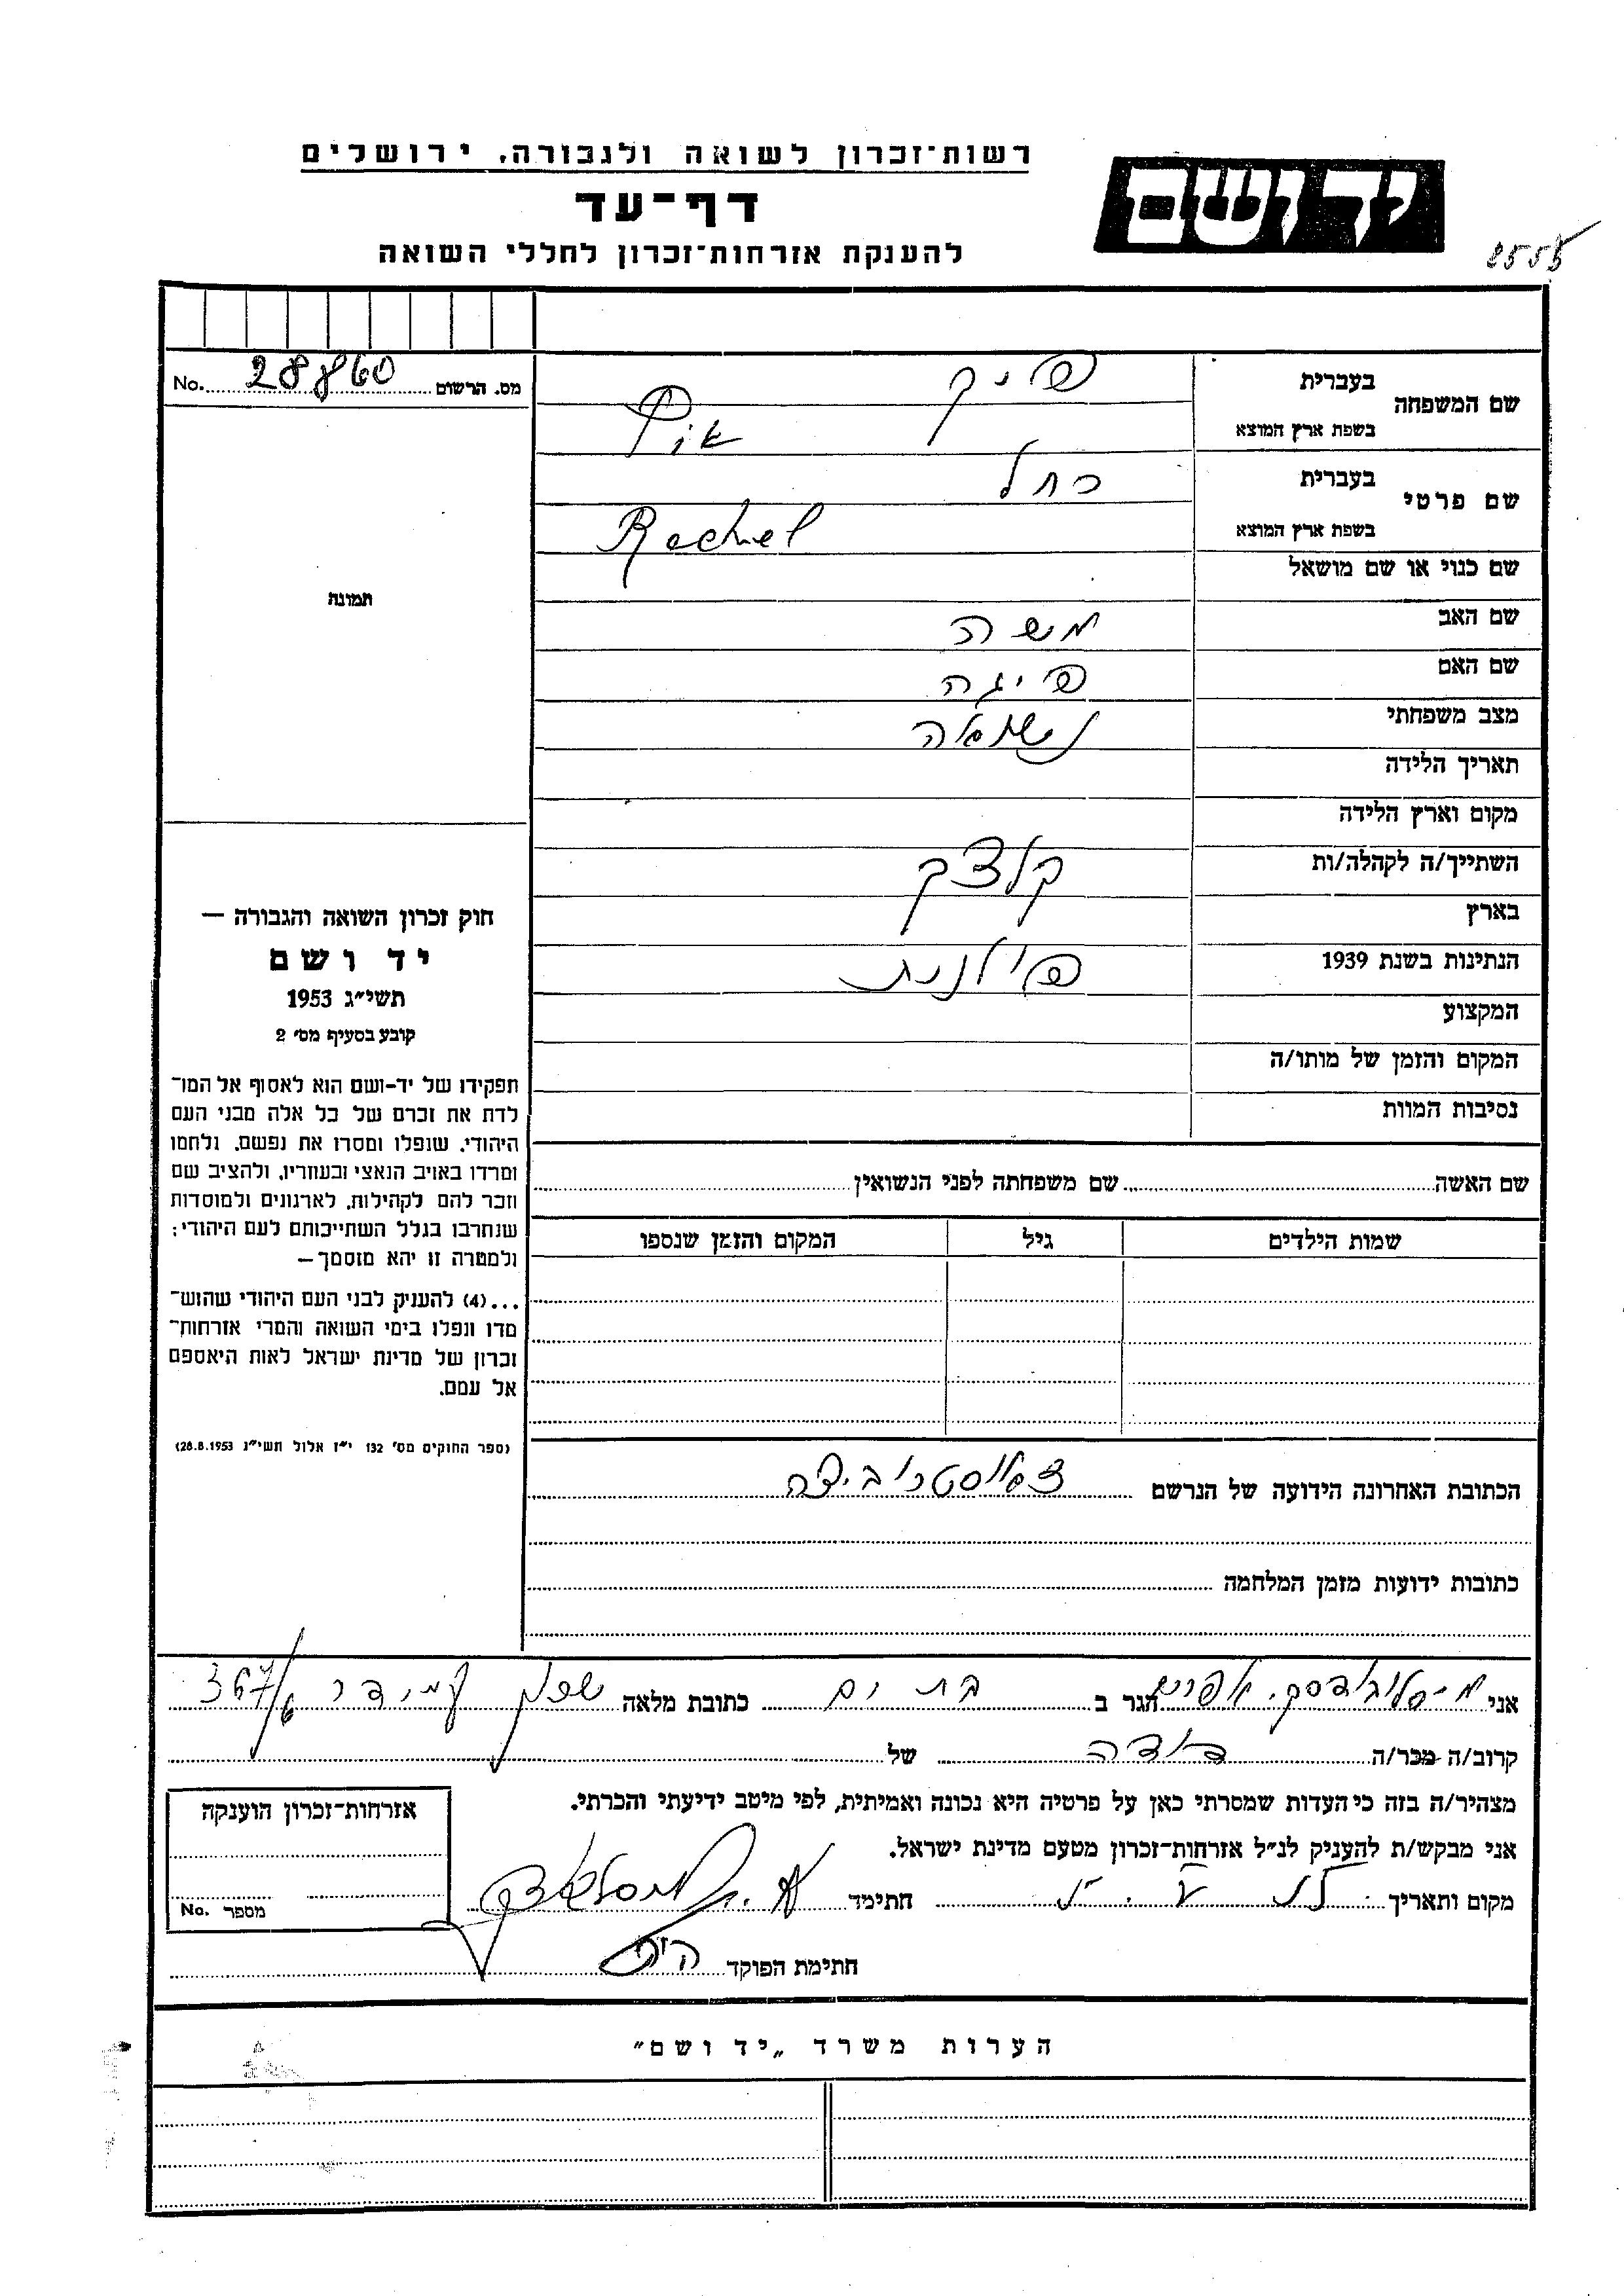 רשות־זכרון לשואה ולגבורה, ירושלים
דף־עד
להענקת אזרחות־זכרון לחללי השואה
יד ושם
מס. הרשום 28860 No.
שם המשפחה
בעברית פיק
בשפת ארץ המוצא
שם פרטי
בעברית רחל
בשפת ארץ המוצא Rachel
שם כנוי או שם מושאל
שם האב משה
שם האם פיגה
מצב משפחתי נשואה
תאריך הלידה
מקום וארץ הלידה
השתייך/ה לקהלה/ות קלצק
בארץ
הנתינות בשנת 1939 פולנית
המקצוע
המקום והזמן של מותו/ה
נסיבות המוות
תמונה
חוק זכרון השואה והגבורה —
יד ושם
תשי״ג 1953
קובע בסעיף מס׳ 2
תפקידו של יד-ושם הוא לאסוף אל המו־
לדת את זכרם של כל אלה מבני העם
היהודי, שנפלו ומסרו את נפשם, נלחמו
ומרדו באויב הנאצי ובעוזריו, ולהציב שם
וזכר להם לקהילות, לארגונים ולמוסדות
שנחרבו בגלל השתייכותם לעם היהודי;
ולמטרה זו יהא מוסמך—
...(4) להעניק לבני העם היהודי שהוש־
מדו ונפלו בימי השואה והמרי אזרחות־
זכרון של מדינת ישראל לאות היאספם
אל עמם.
(ספר החוקים מס׳ 132 י״ז אלול תשי״ג 28.8.1953)
שם האשה שם משפחתה לפני הנשואין
שמות הילדים גיל המקום והזמן שנספו
הכתובת האחרונה הידועה של הנרשם
כתובות ידועות מזמן המלחמה
אני הגר ב בת ים כתובת מלאה שכון עמידר 367/6
קרוב/ה מכר/ה דודה של
מצהיר/ה בזה כי העדות שמסרתי כאן על פרטיה היא נכונה ואמיתית, לפי מיטב ידיעתי והכרתי.
אני מבקש/ת להעניק לנ״ל אזרחות־זכרון מטעם מדינת ישראל.
מקום ותאריך חתימה
חתימת הפוקד
אזרחות־זכרון הוענקה
מספר No.
הערות משרד „יד ושם״